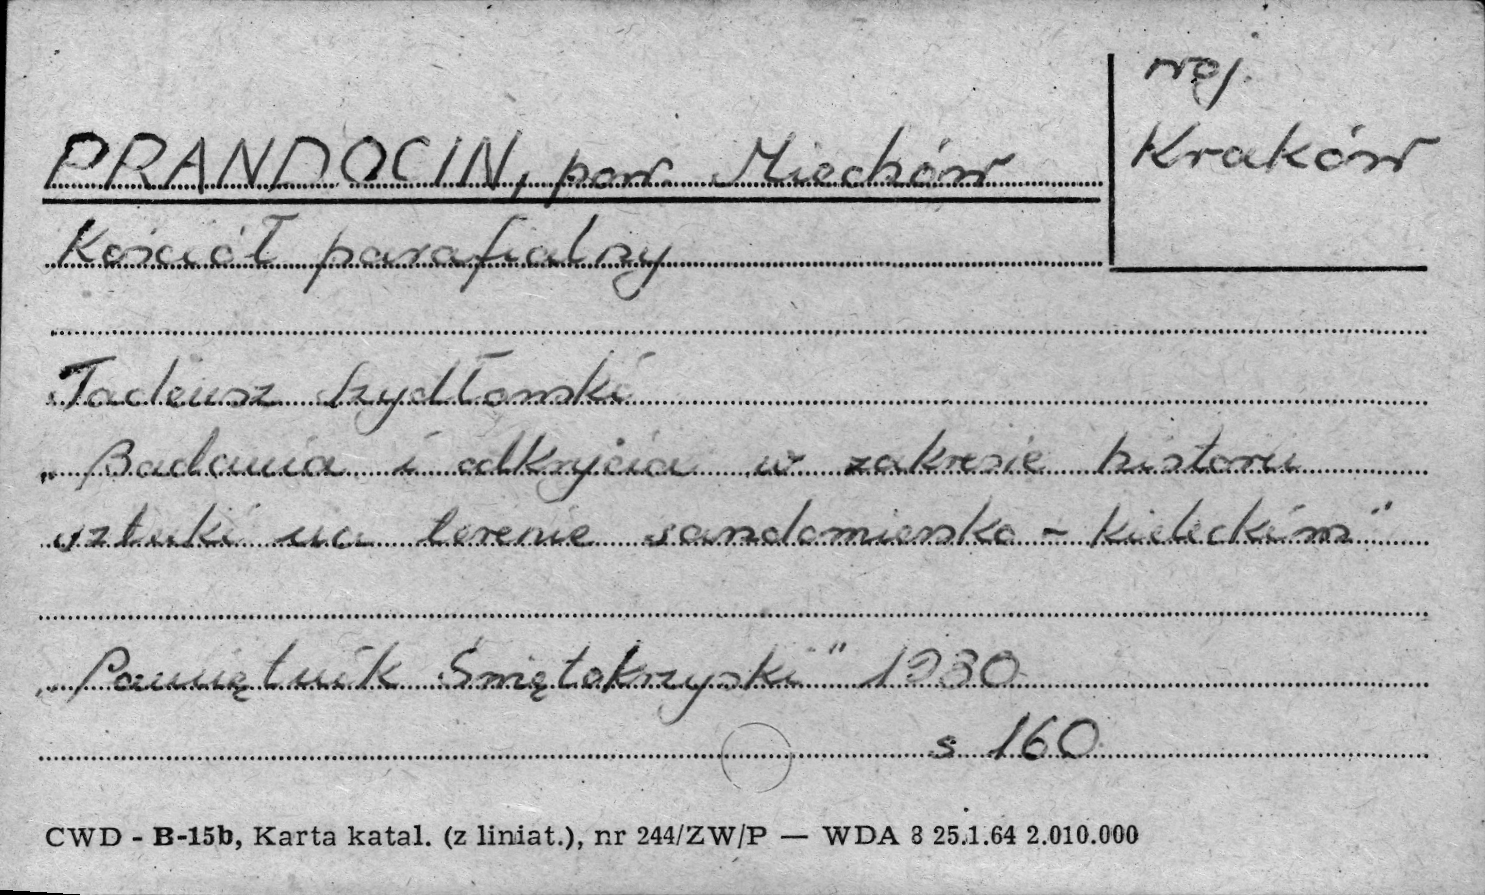 woj.
Kraków
PRANDOCIN, pow. Miechów
Kościół parafialny
Tadeusz Szydłowski
„Badania i odkrycia w zakresie historii
sztuki na terenie sandomiersko - kieleckim"
„Pamiętnik Świętokrzyski" 1930
s 160
CWD - B-15b, Karta katal. (z liniat.), nr 244/ZW/P — WDA 3 25.1.64 2.010.000